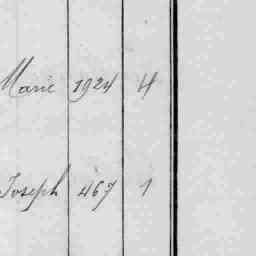 Marie 1924 4
Joseph 467 1